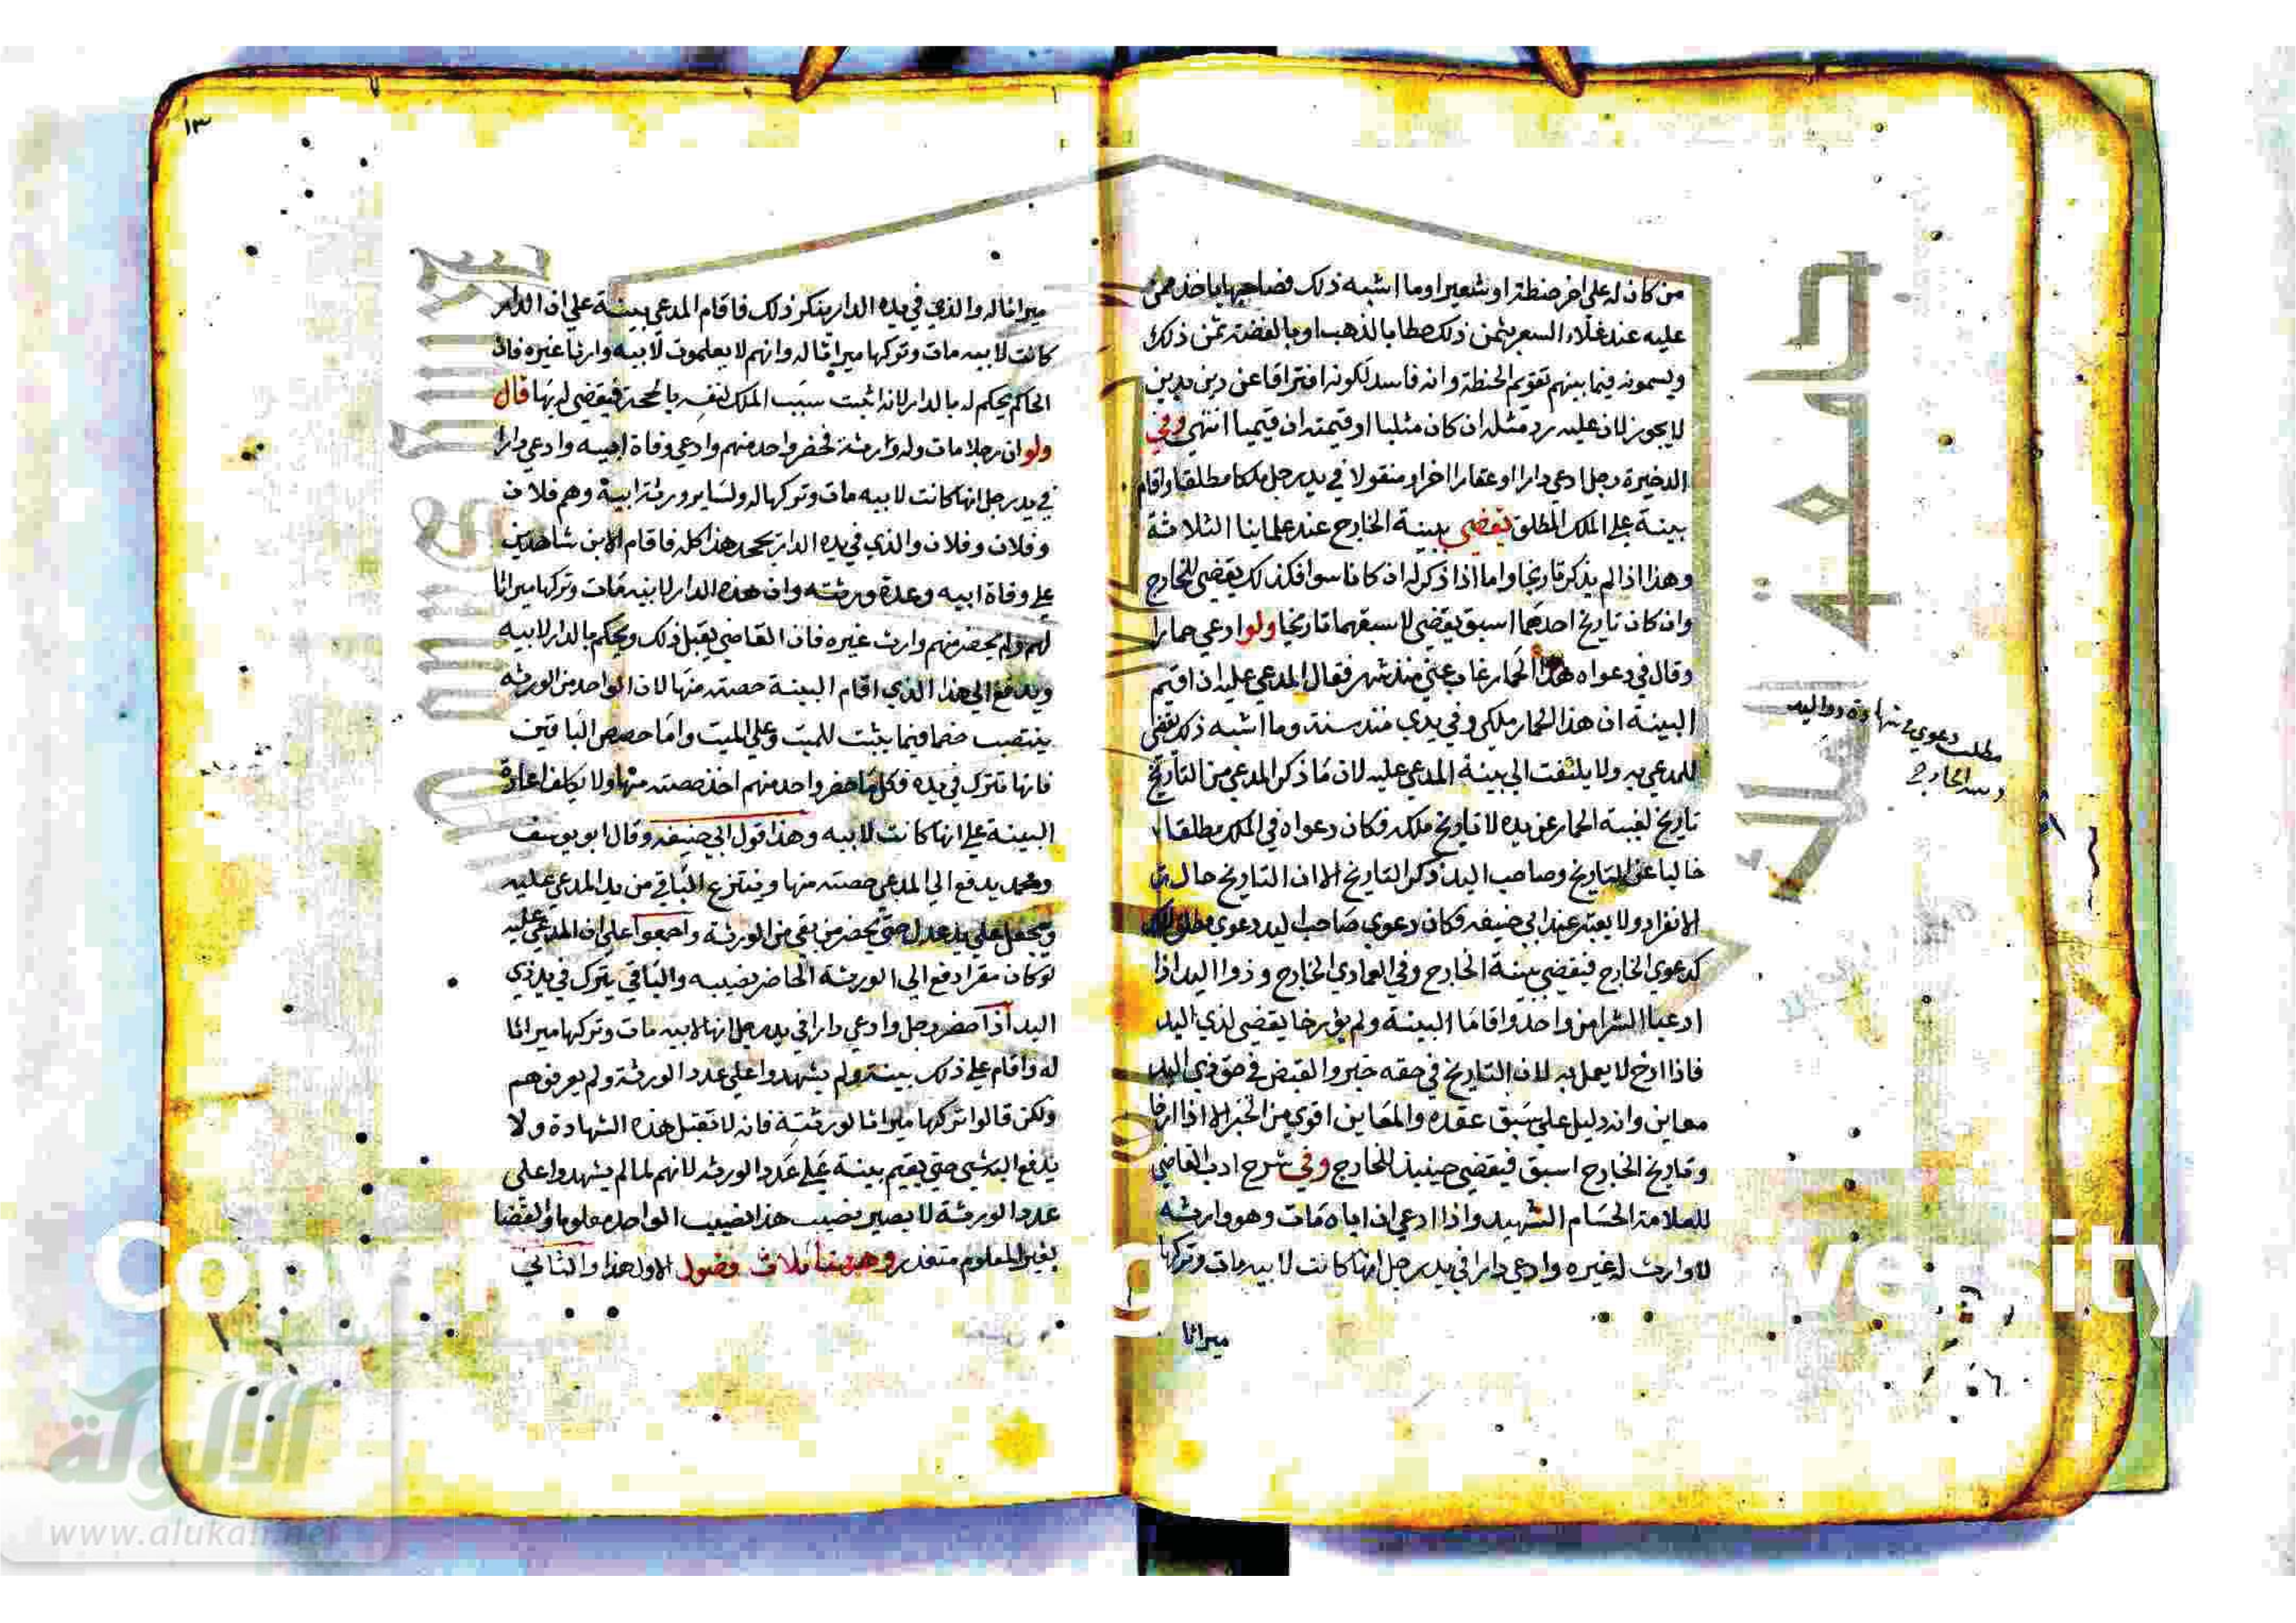 من كان له على اخر حنطة او شعيرا وما اشبه ذلك فصاحبها ياخذ ممن
عليه عند غلاء السعر بثمن ذلك حطا بالذهب او بالفضة ثمن ذلك
ويسمونه فيما بينهم تقويم الحنطة وانه فاسد لكونه افتراقا عن دين بدين
لا يجوز لان عليه رد مثله ان كان مثليا او قيمته ان قيميا انتهي وفي
الدخيرة رجل ادعي دارا او عقارا اخر او منقولا في يد رجل ملكا مطلقا واقام
بينة علي الملك المطلق تقضي ببينة الخارج عند علماينا الثلاثة
وهذا اذا لم يذكر تاريخا واما اذا ذكر له ان كانا سوا فكذلك يقضي للخارج
وان كان تاريخ احدهما اسبق يقضي لاسبقهما تاريخا ولو ادعي حمارا
وقال في دعواه هذا الحمار غاب عني منذ شهر فقال المدعي عليه ان اقيم
البينة ان هذا الحمار ملكي وفي يدي منذ سنة وما اشبه ذلك يقضي
للمدعي به ولا يلتفت الي بينة المدعي عليه لان ما ذكر المدعي من التاريخ
تاريخ لغيبة الحمار عن يده لا تاريخ ملكه فكان دعواه في الملك مطلقا
خاليا عن التاريخ وصاحب اليد ذكر التاريخ الا ان التاريخ حالة
الانفراد ولا يعتبر عند ابي حنيفه فكان دعوي صاحب اليد دعوي مطلق الملك
كدعوي الخارج فيقضي ببينة الخارج وفي العمادي الخارج وذوا اليد اذا
ادعيا الشرا من واحد واقاما البينة ولم يورخا يقضي لذي اليد
فاذا ارخ لا يعمل به لان التاريخ في حقه خبر والقبض في حق ذي اليد
معاين وانه دليل علي سبق عقده والمعاين اقوي من الخبر الا اذا ارخا
وتاريخ الخارج اسبق فيقضي حينيذ للخارج وفي شرح ادب القاضي
للعلامة الحسام الشهيد واذا ادعي ان اباه مات وهو وارثه
لا وارث له غيره وادعي دارا في يد رجل انها كانت لابيه مات وتركها
ميراثا
مطلب دعوي
الخارج
١٣
ميراثا له والذي في يده الدار ينكر ذلك فاقام المدعي بينة علي ان الدار
كانت لابيه مات وتركها ميراثا له وانهم لا يعلموت لابيه وارثا غيره فان
الحاكم يحكم له بالدار لانه اثبت سبب الملك لنفسه بالحجة فيقضي له بها قال
ولو ان رجلا مات وله ورثة فحضر واحد منهم وادعي وفاة ابيه وادعي دارا
في يد رجل انها كانت لابيه مات وتركها له ولساير ورثة ابيه وهم فلان
وفلان وفلان والذي في يده الدار يجحد هذا كله فاقام الابن شاهدين
علي وفاة ابيه وعدة ورثته وان هذه الدار لابيه مات وتركها ميراثا
لهم ولم يحضر منهم وارث غيره فان القاضي يقبل ذلك ويحكم بالدار لابيه
ويدفع الي هذا الذي اقام البينة حصته منها لان الواحد من الورثه
ينتصب خصما فيما يثبت للميت وعلي الميت واما حصص الباقين
فانها تترك في يده فكل ما حضر واحد منهم اخذ حصته منها ولا يكلف اعادة
البينة علي انها كانت لابيه وهذا قول ابي حنيفه وقال ابو يوسف
ومحمد يدفع الي المدعي حصته منها وينتزع الباقي من يد المدعي عليه
ويجعل علي يد عدل حتي يحضر من بقي من الورثة واجمعوا علي ان المدعي عليه
لو كان مقرا دفع الي الورثة الحاضر نصيبه والباقي يترك في يد ذي
اليد اذا حضر رجل وادعي دارا في يد رجل انها لابيه مات وتركها ميراثا
له واقام علي ذلك بينة ولم يشهدوا علي عدد الورثة ولم يعرفوهم
ولكن قالوا تركها ميراثا لورثته فانه لا تقبل هذه الشهادة ولا
يدفع اليه شي حتي يقيم بينة علي عدد الورثه لانهم لما لم يشهدوا علي
عدد الورثة لا يصير نصيب هذا نصيب الواحد معلوما والقضا
بغير المعلوم متعذر وههنا ثلاث فصول الاول هذا والثاني
جامعة الملك
الألوكة
www.alukah.net